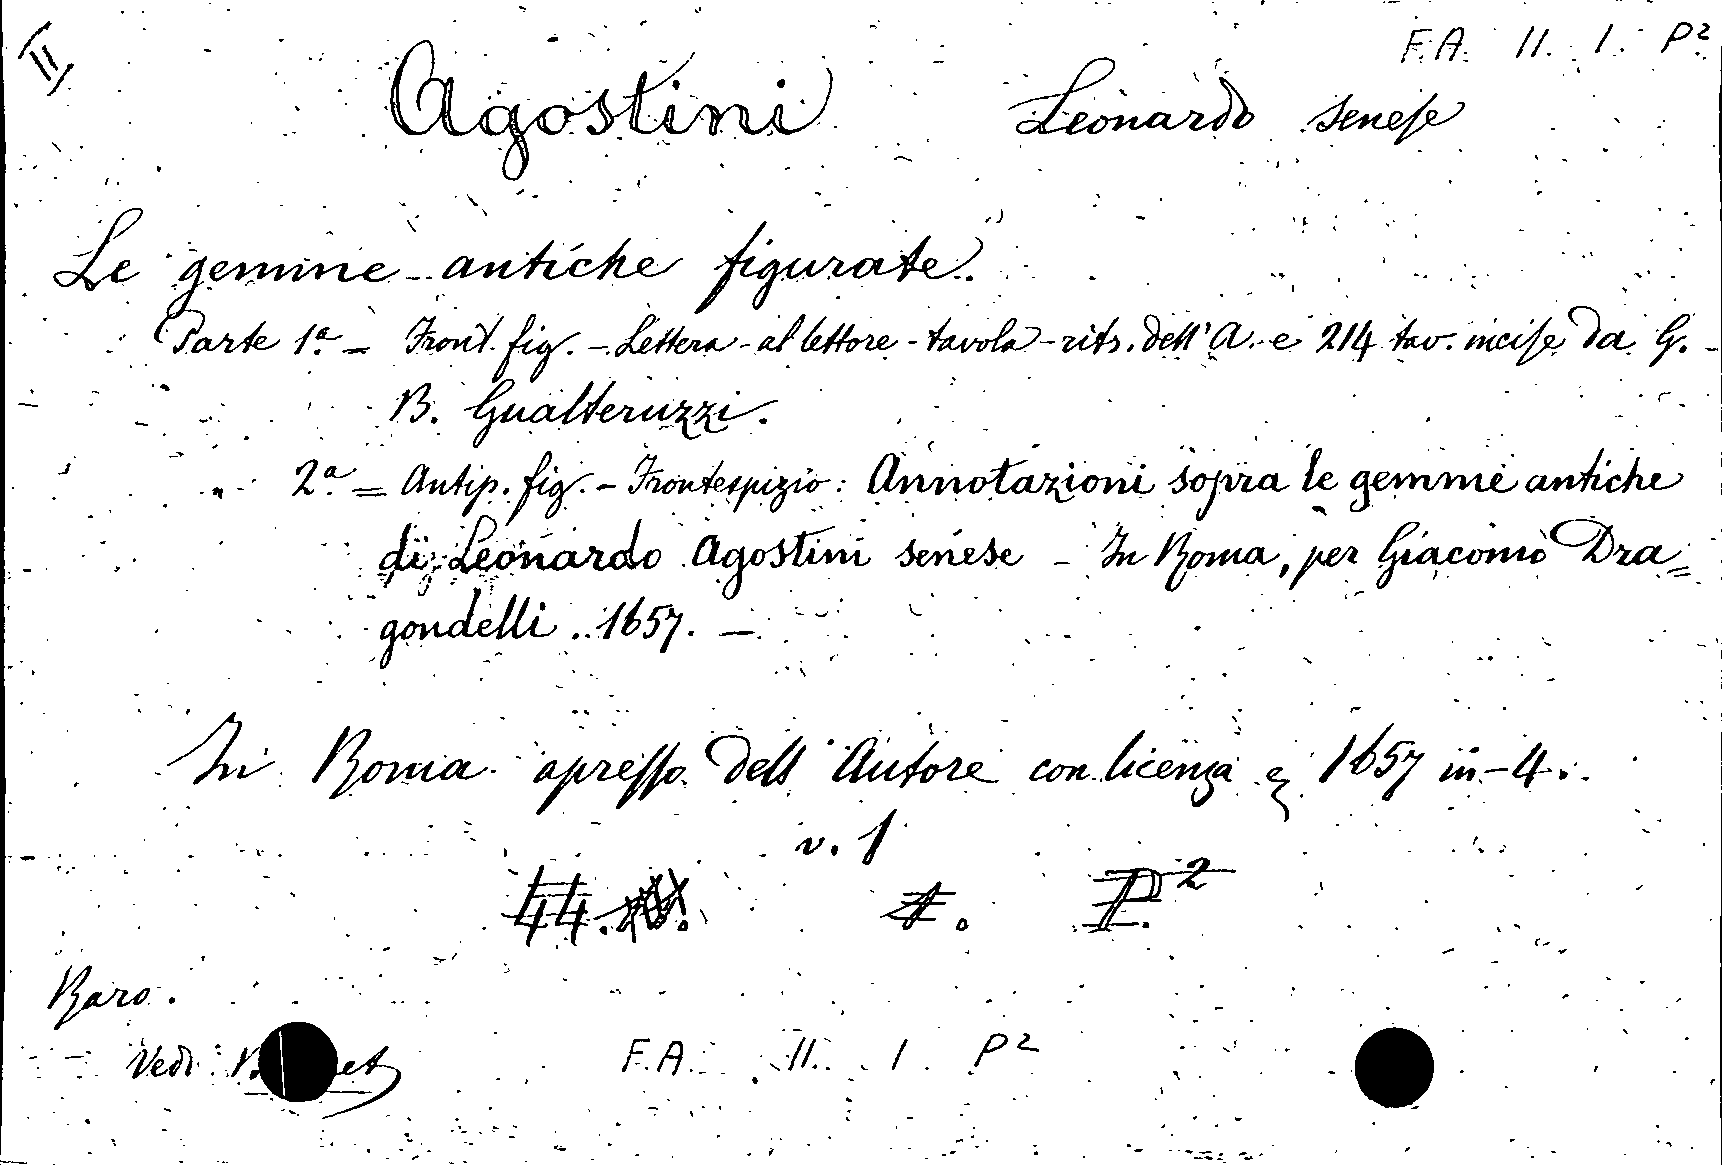 II
F.A. II. I. P2
Agostini Leonardo senese
Le gemme antiche figurate.
Parte 1a. = Front. fig. - Lettera - al lettore - tavola - ritr. dell'A. e 214 tav. incise da G.
B. Gualteruzzi.
" 2a. = Antip. fig. - Frontespizio: Annotazioni sopra le gemme antiche
di Leonardo Agostini senese - In Roma, per Giacomo Dra=
gondelli. 1657. -
In Roma apresso dell' Autore con licenza 1657 in-4.
v. 1
44. P.2
Raro.
Vedi
F.A. II. I P2